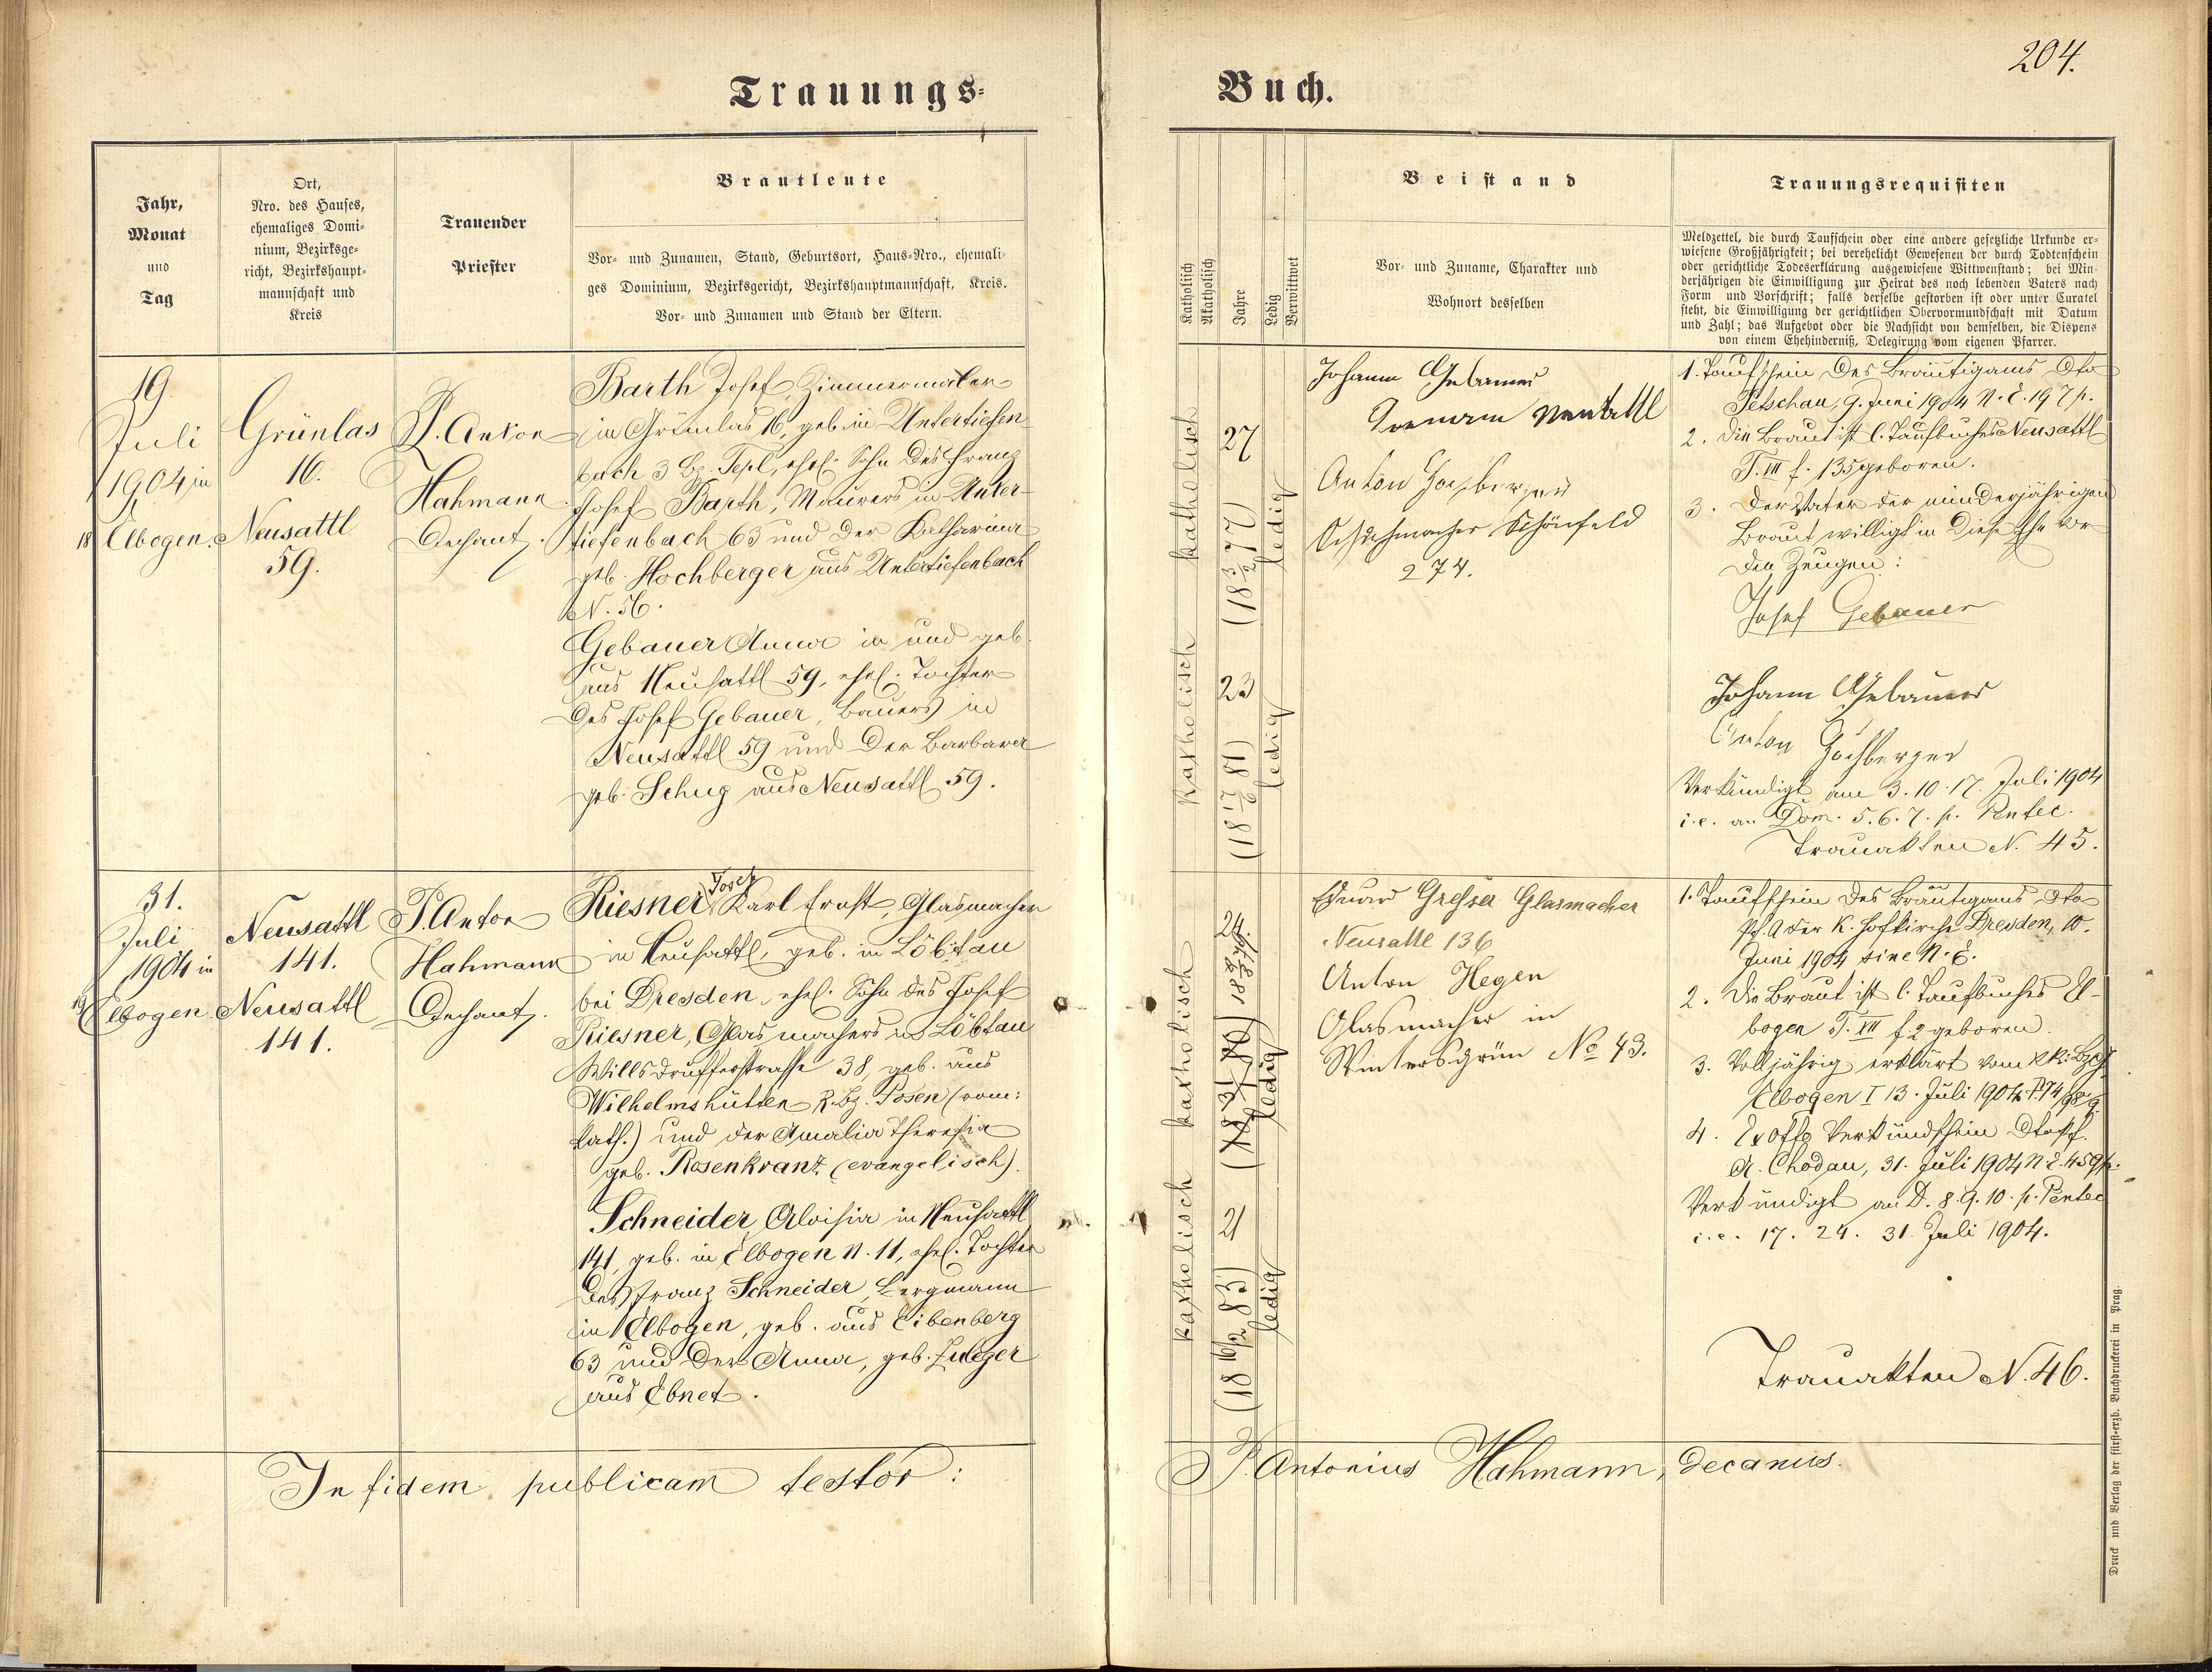 204.
Trauungs-
Buch.
Jahr,
Monat
und
Tag
Ort,
Nro. des Hauses,
ehemaliges Domi-
nium, Bezirksge-
richt, Bezirkshaupt-
mannschaft und
Kreis
Trauender
Priester
Brautleute
Vor- und Zunamen, Stand, Geburtsort, Haus-Nro., ehemali-
ges Dominium, Bezirksgericht, Bezirkshauptmannschaft, Kreis.
Vor- und Zunamen und Stand der Eltern.
Katholisch
Akatholisch
Jahre
Ledig
Verwittwet
Beistand
Vor- und Zuname, Charakter und
Wohnort desselben
Trauungsrequisiten
Meldzettel, die durch Taufschein oder eine andere gesetzliche Urkunde er-
wiesene Großjährigkeit; bei verehelicht Gewesenen der durch Todtenschein
oder gerichtliche Todeserklärung ausgewiesene Wittwenstand; bei Min-
derjährigen die Einwilligung zur Heirat des noch lebenden Vaters nach
Form und Vorschrift; falls derselbe gestorben ist oder unter Curatel
steht, die Einwilligung der gerichtlichen Obervormundschaft mit Datum
und Zahl; das Aufgebot oder die Nachsicht von demselben, die Dispens
von einem Ehehinderniß, Delegirung vom eigenen Pfarrer.
19.
Juli
1904 in
18 Elbogen.
Grünlas
16.
Neusattl
59.
P. Anton
Hahmann
Dechant.
Barth Josef, Zimmermaler
in Grünlas 16, geb. in Untertiefen-
bach 3 Bz. Tepl, ehel. Sohn des Franz
Josef Barth, Maurers in Unter-
tiefenbach 63 und der Katharina
geb. Hochberger aus Untertiefenbach
N. 56.
Gebauer Anna in und geb.
aus Neusattl 59, ehel. Tochter
des Josef Gebauer, Bauers in
Neusattl 59 und der Barbara
geb. Schug aus Neusattl 59.
katholisch
27
(18 3/2 77)
ledig
katholisch
23
(18 17/6 81)
ledig
Johann Gebauer
Neusattl
Anton Hochberger
Schuhmacher Schönfeld
274.
1. Taufschein des Bräutigams dto
Petschau, 9. Juni 1904 N. E. 197 p.
2. Die Braut ist l. Taufbuches Neusattl
T. III f. 135 geboren.
3. Der Vater der minderjährigen
Braut willigt in diese Ehe vor
den Zeugen:
Josef Gebauer
Johann Gebauer
Anton Hochberger
Verkündigt am 3. 10. 17. Juli 1904
i. e. an Dom. 5. 6. 7. p. Pentec.
Trauakten N. 45.
31.
Juli
1904 in
19 Elbogen.
Neusattl
141.
Neusattl
141.
P. Anton
Hahmann
Dechant.
Josef
Riesner Karl Ernst, Glasmacher
in Neusattl, geb. in Löbtau
bei Dresden, ehel. Sohn des Josef
Riesner, Glasmachers in Löbtau
Willsdrufferstrasse 38, geb. aus
Wilhelmshütten R. Bz. Posen (röm:
kath.) und der Amalia Theresia
geb. Rosenkranz (evangelisch).
Schneider Aloisia in Neusattl
141, geb. in Elbogen N. 11, ehel. Tochter
des Franz Schneider, Bergmann
in Elbogen, geb. aus Eibenberg
63 und der Anna, geb. Zuleger
aus Ebnet.
katholisch
24.
ledig
katholisch
21
(18 16/2 83)
ledig
Eduard Gresser Glasmacher
Neusattl 136
Anton Hegen
Glasmacher in
Wintersgrün No 43.
1. Taufschein des Bräutigams dto
Pf. A der K. Hofkirche Dresden, 10.
Juni 1904 sine N. E.
2. Die Braut ist l. Taufbuches El-
bogen T. XII f 2 geboren.
3. Volljährig erklärt vom kk. Bzg
Elbogen I 13. Juli 1904
4. Ex offo Verkündschein dto Pf.
A. Chodau, 31. Juli 1904 N. E. 459 p.
Verkündigt an D. 8. 9. 10. p. Pentec
i. e. 17. 24. 31. Juli 1904.
Trauakten N. 46.
In fidem publicam testor:
P. Antonius Hahmann, decanus.
Druck und Verlag der fürst-erzb. Buchdruckerei in Prag.